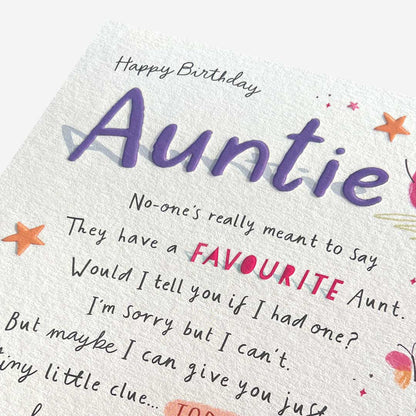 Happy Birthday
Auntie
No-one's really meant to say
They have a FAVOURITE Aunt.
Would I tell you if I had one?
I'm sorry but I can't.
But maybe I can give you just
tiny little clue...